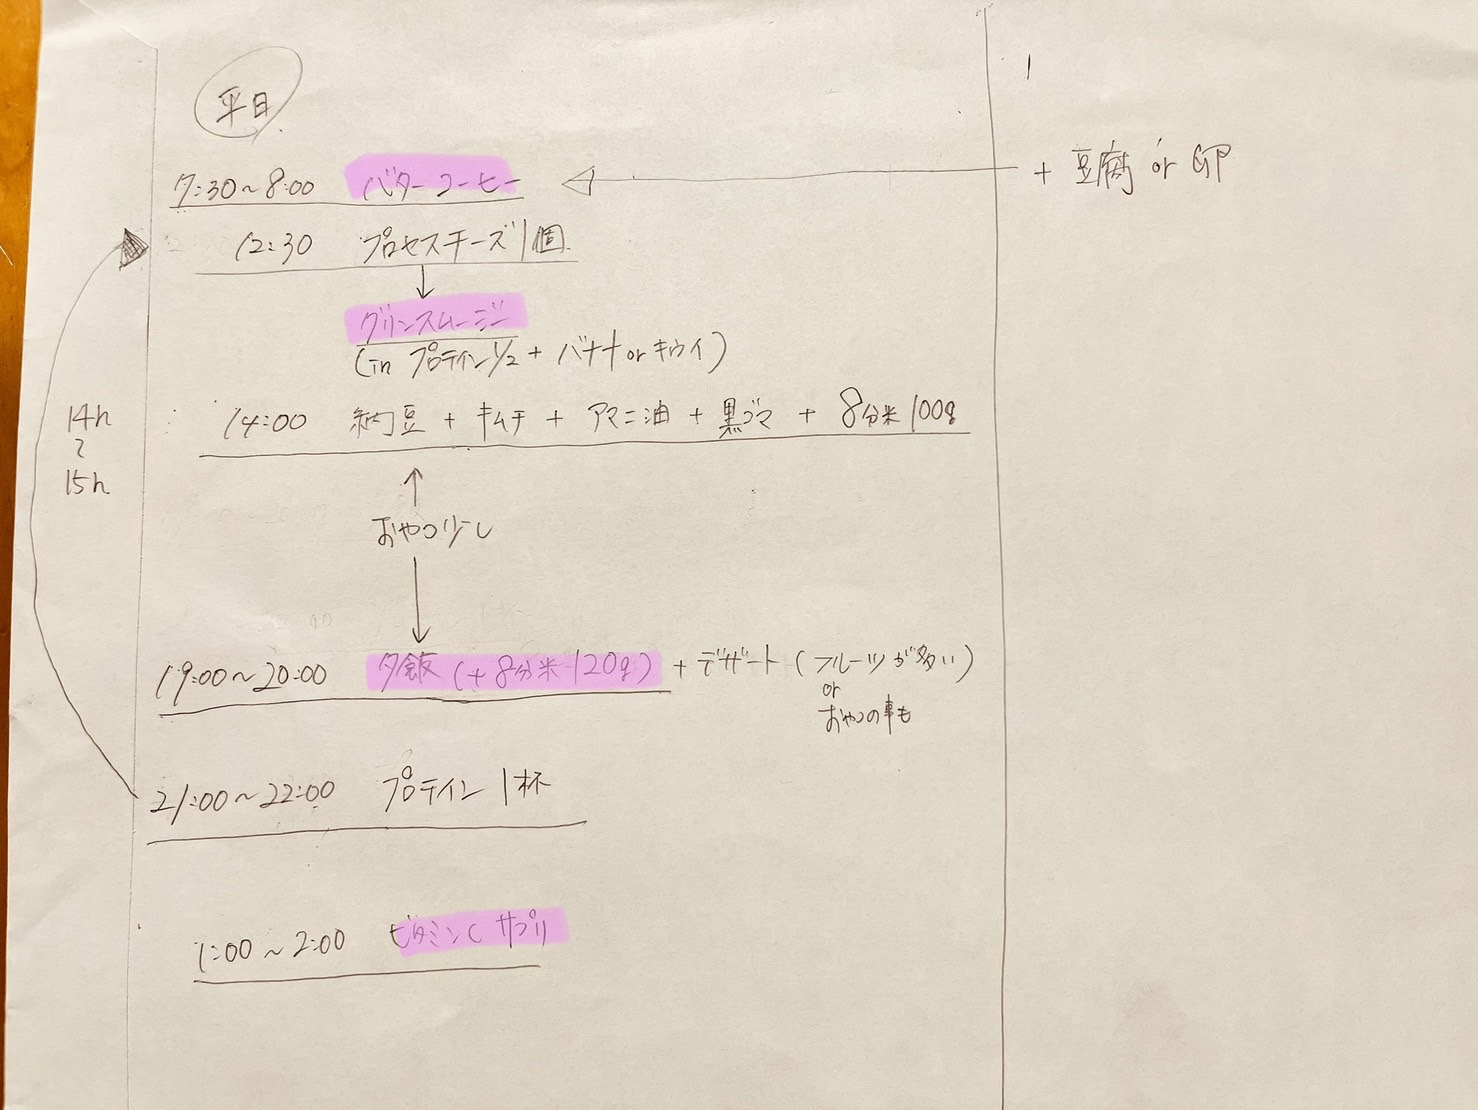 平日
7:30~8:00 バターコーヒー + 豆腐 or 卵
12:30 プロセスチーズ1個
グリンスムージー
(in プロテイン1/2 + バナナ or キウイ)
14:00 納豆 + キムチ + アマニ油 + 黒ゴマ + 8分米100g
14h
~
15h
おやつ少し
19:00~20:00 夕飯 (+8分米120g) + デザート (フルーツが多い)
or
おやつの事も
21:00~22:00 プロテイン1杯
1:00~2:00 ビタミンC サプリ